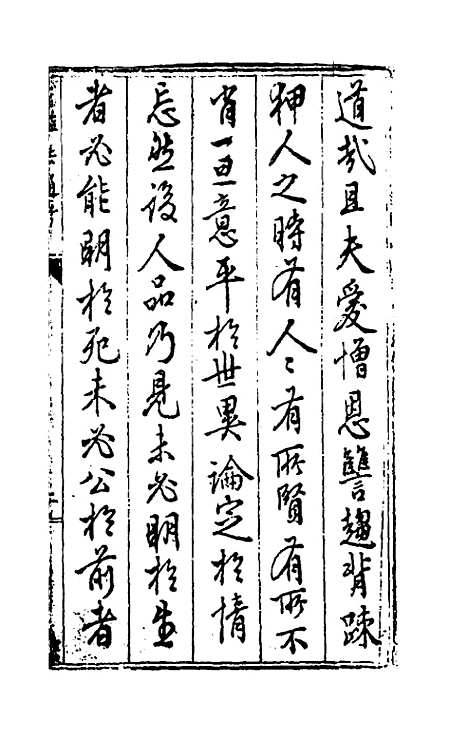 道哉且夫愛憎恩讐趨背踈
狎人之時有人〻有所賢有所不
肖一旦意平於世異論定於情
忘然後人品乃見未必明於生
者必能明於死未必公於前者